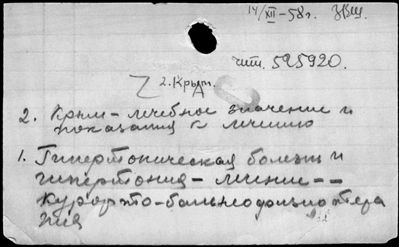 14/XII-58г.
шт. 525920.
2. Крым.
2. Крым - лечебное значение и
показания к лечению
1. Гипертоническая болезнь и
гипертония - лечение --
курорто-бальнео
пия